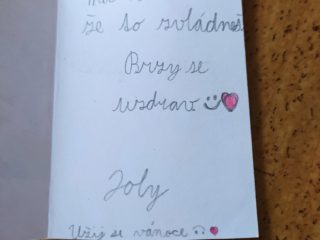 že to zvládneš
Brzy se
uzdrav
Joly
Užij se vánoce